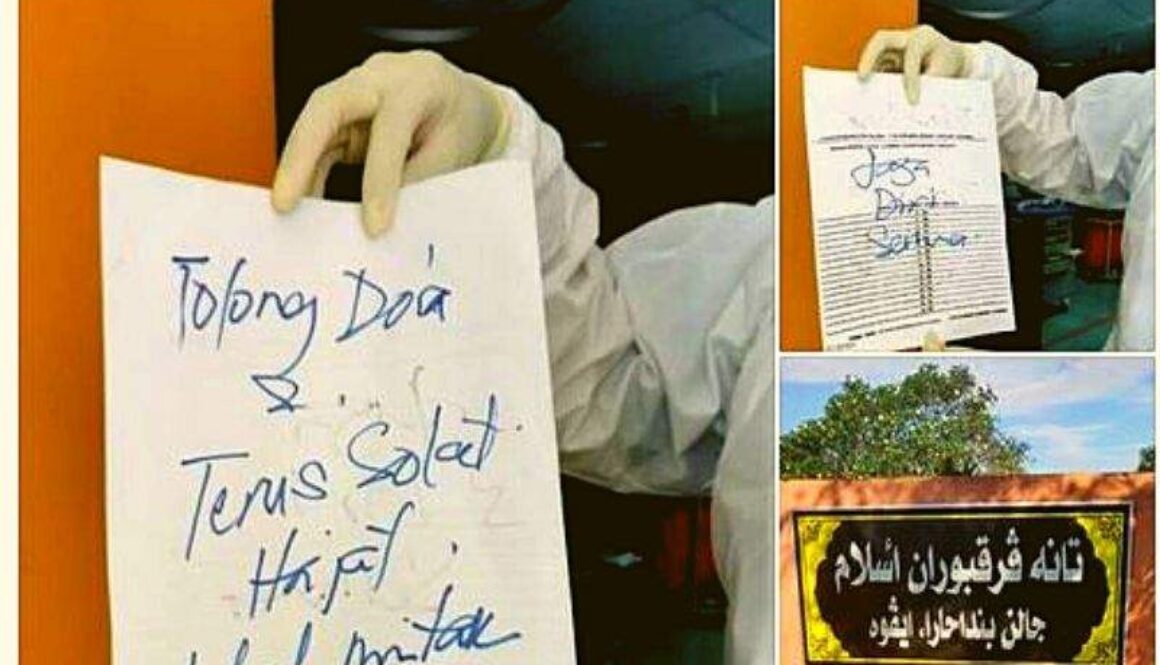 Tolong Doa
&
Terus Solat
Hajat
mintak
Jaga
Diri
Semua
تانه ڤرقبوران اسلام
جالن بنداهارا، ايڤوه